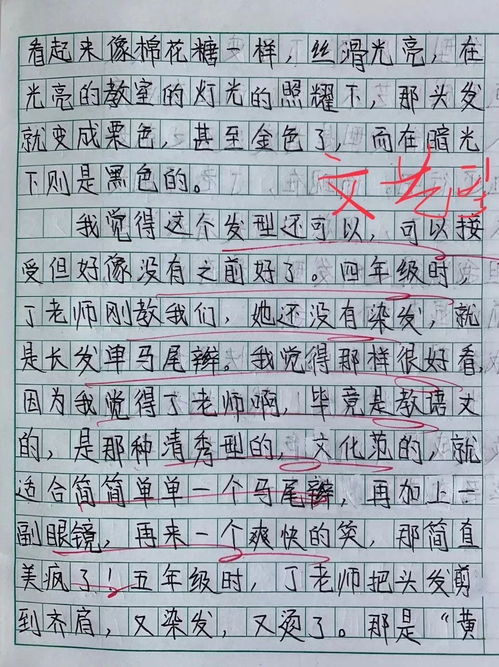 看起来像棉花糖一样，丝滑光亮，在
光亮的教室的灯光的照耀下，那头发
就变成栗色，甚至金色了，而在暗光
下则是黑色的。
我觉得这个发型还可以，可以接
受但好像没有之前好了。四年级时，
丁老师刚教我们，她还没有染发，就
是长发单马尾辫。我觉得那样很好看，
因为我觉得丁老师啊，毕竟是教语文
的，是那种清秀型的，文化范的，就
适合简简单单一个马尾辫，再加上一
副眼镜，再来一个爽快的笑，那简直
美疯了！五年级时，丁老师把头发剪
到齐肩，又染发，又烫了。那是“黄